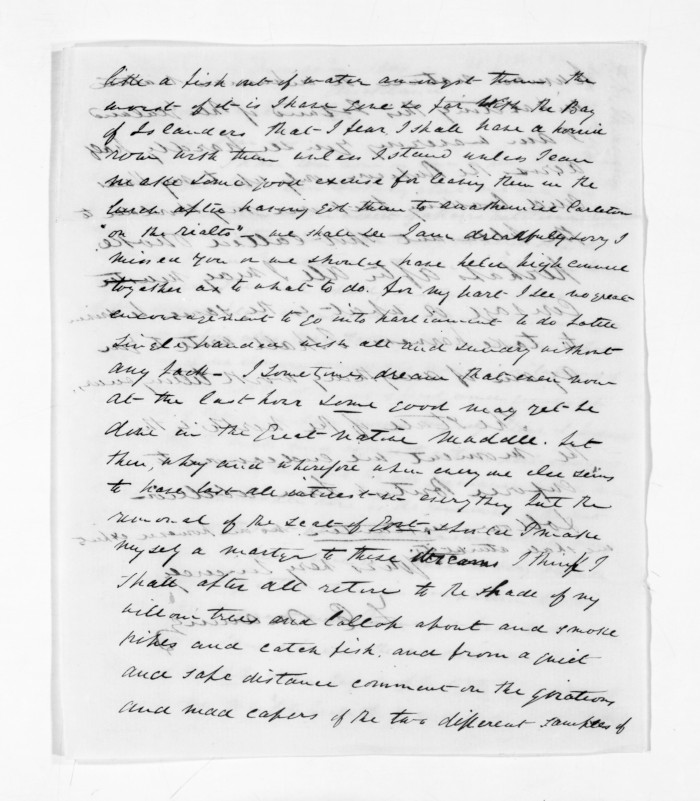 like a fish out of water amongst them the
worst of it is I have gone so far with the Bay
of Islanders that I fear I shall have a horrid
row with them unless I stand unless I can
make some good excuse for leaving them in the
lurch after having got them to a
"on the rialto" – we shall see I am dreadfully sorry I
missed you or we should have held high council
together as to what to do. for my part I see no great
encouragement to go into parliament to do battle
single handed with all and sundry without
any back – I sometimes dream that even now
at the last hour some good may yet be
done in the Great Native Muddle. but
then, why and wherefore when every one else seems
to have lost all interest in everything but the
removal of the seat of Govt, should I make
myself a martyr to these dreams I think I
shall after all retire to the shade of my
willow trees and lollop about and smoke
pipes and catch fish. and from a quiet
and safe distance comment on the gyrations
and mad capers of the two different samples of